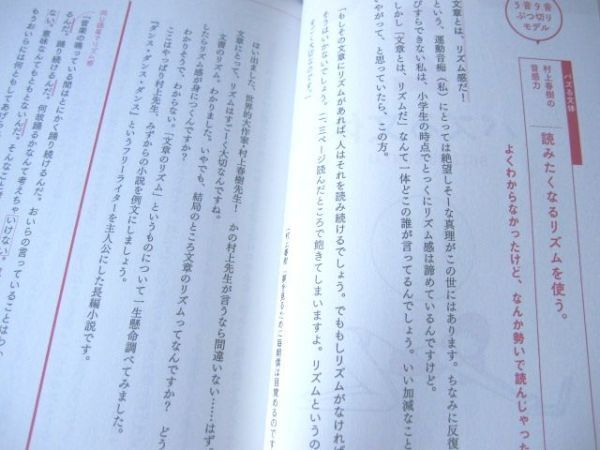 5音9音
ぶつ切り
モデル
バズる文体
村上春樹の
音感力
読みたくなるリズムを使う。
よくわからなかったけど、なんか勢いで読んじゃった
文章とは、リズム感だ!
という、運動音痴(私)にとっては絶望しそーな真理がこの世にはあります。ちなみに反復
びすらできない私は、小学生の時点でとっくにリズム感は諦めているんですけど。
しかし「文章とは、リズムだ」なんて一体どこの誰が言ってるんでしょう。いい加減なこと
いやがって、と思っていたら、この方。
「もしその文章にリズムがあれば、人はそれを読み続けるでしょう。でももしリズムがなければ
そうはいかないでしょう。二、三ページ読んだところで飽きてしまいますよ。リズムというの
すごく大切なのです」
夢を見るために毎朝僕は目覚めるのです
はい出ました、世界的大作家・村上春樹先生! かの村上先生が言うなら間違いない……はず。
文章にとって、リズムはすごーく大切なんですね。
文書のリズム。わかりました。いやでも、結局のところ文章のリズムってなんですか? どう
したらリズム感が身につくんですか?
わかりそうで、わからない。「文章のリズム」というものについて一生懸命調べてみました。
ここはやっぱり村上先生、みずからの小説を例文にしましょう。
『ダンス・ダンス・ダンス』というフリーライターを主人公にした長編小説です。
同じ語尾でリズム感
「音楽の鳴っている間はとにかく踊り続けるんだ。おいらの言っていることはわか
るんだ。踊り続けるんだ。何故踊るかなんて考えちゃいけない。
ない。意味なんてもともとないんだ。そんなこと